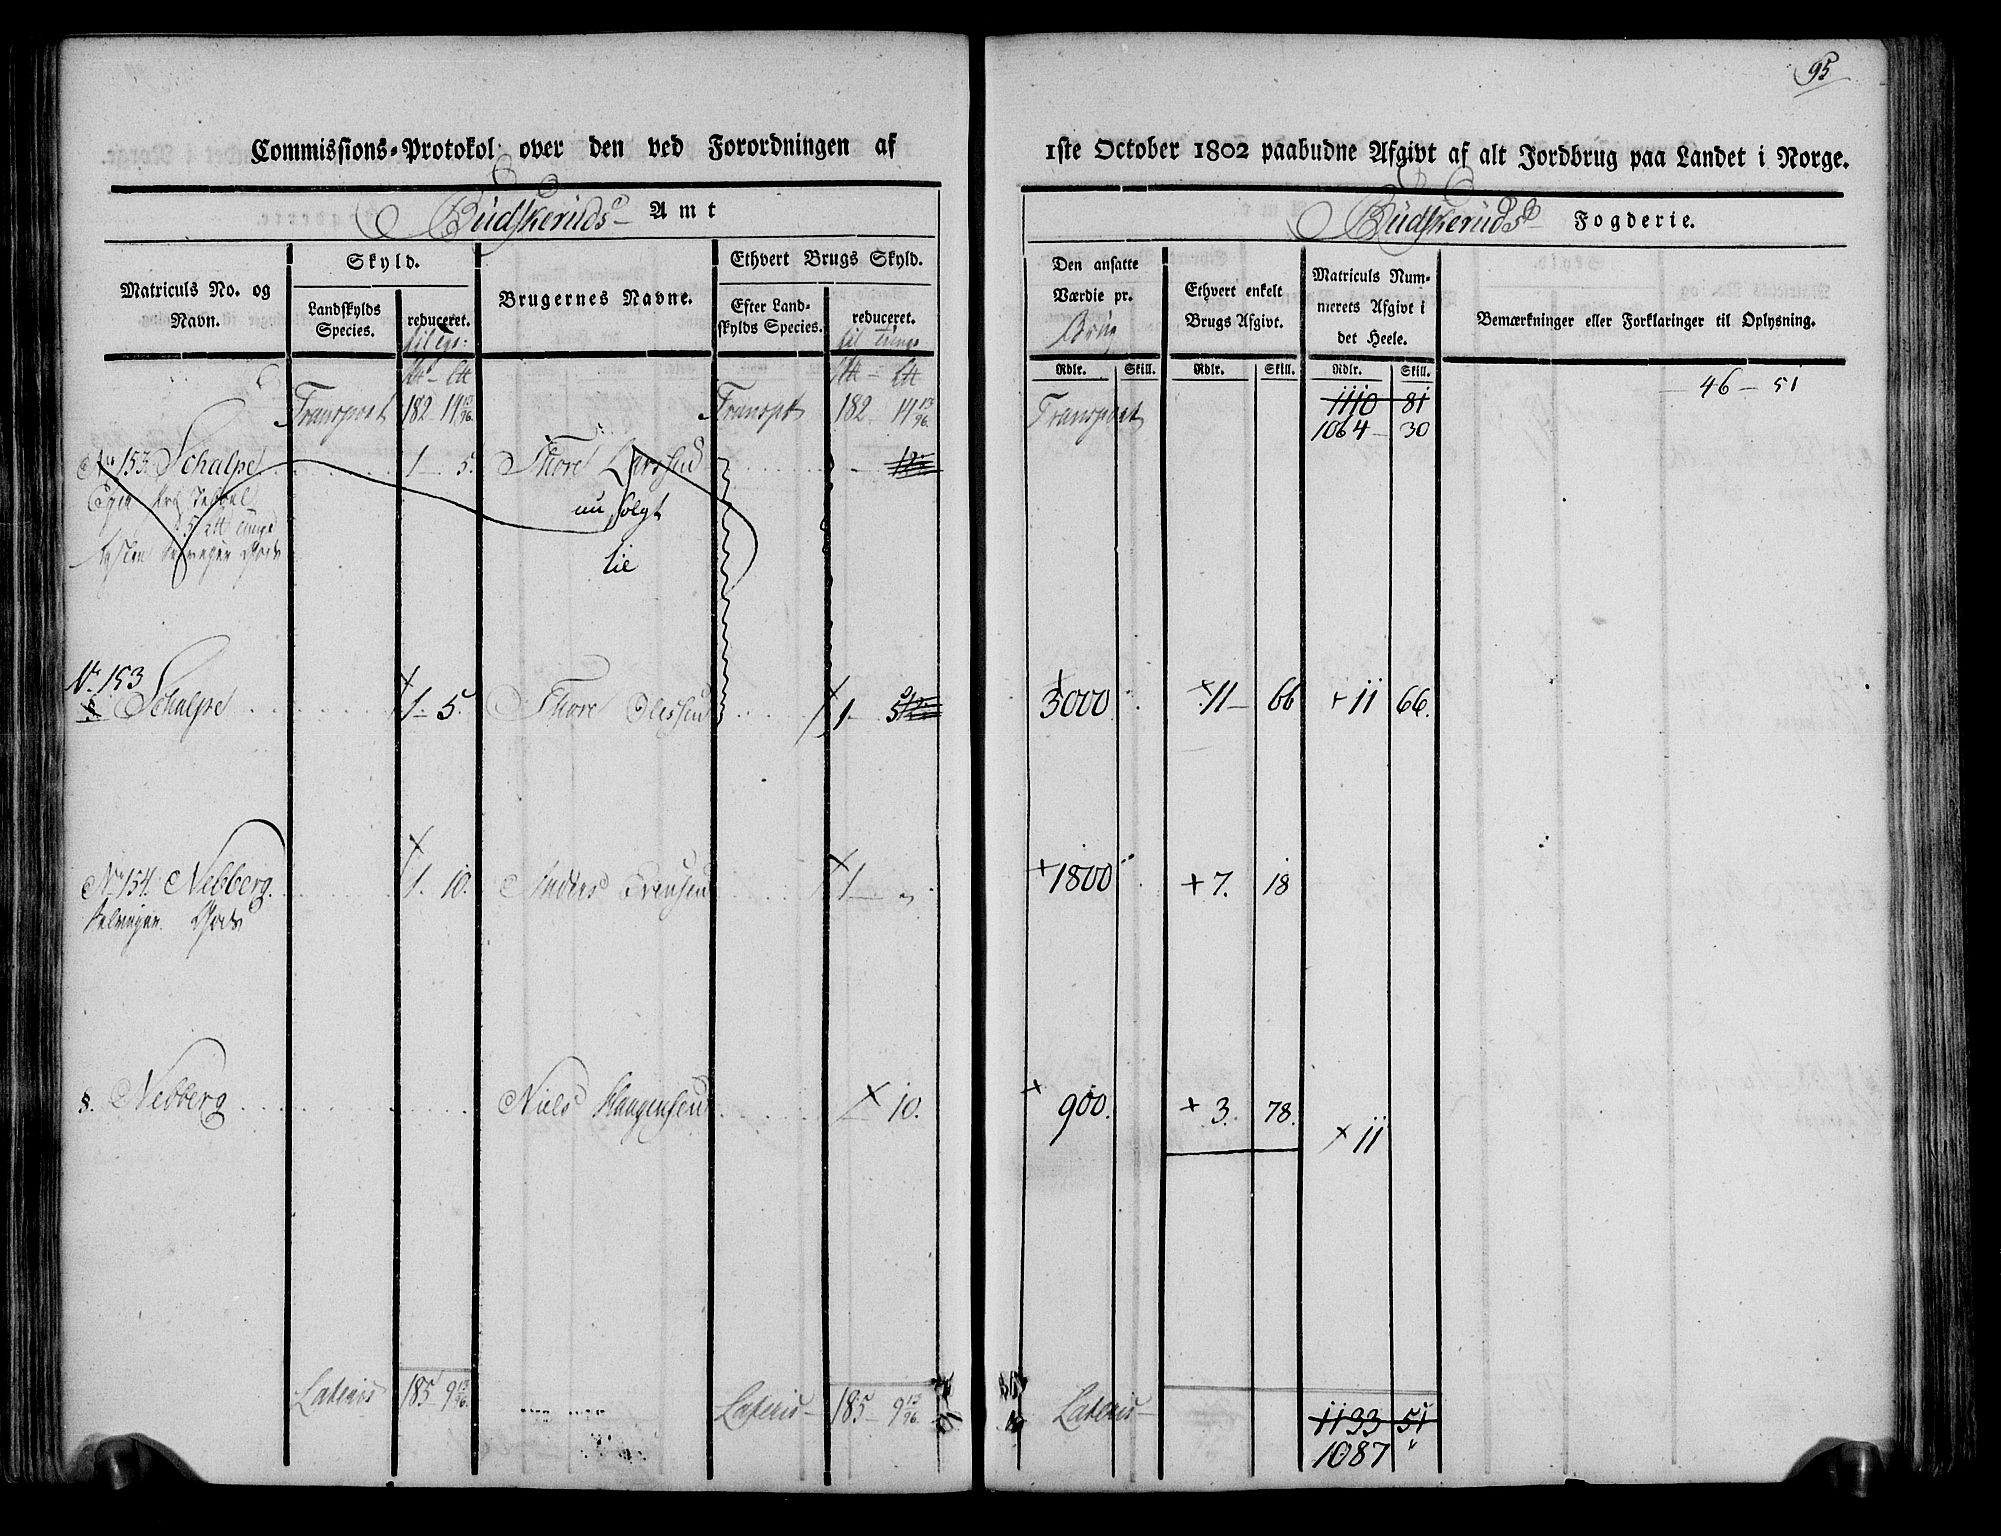 95
Commissions-Protokol over den ved Forordningen af
1ste October 1802 paabudne Afgivt af alt Jordbrug paa Landet i Norge.
Budskeruds Amt
Budskeruds Fogderie.
Matriculs No. og Navn.
Skyld.
Landskylds Species.
reduceret.
Brugernes Navne.
Ethvert Brugs Skyld.
Efter Landskylds Species.
reduceret.
Den ansatte Værdie pr. Brug
Ethvert enkelt Brugs Afgivt.
Matriculs Nummerets Afgivt i det Heele.
Bemærkninger eller Forklaringer til Oplysning.
Rdlr. Skill. Rdlr. Skill. Rdlr. Skill.
Transport 182 14 13/96 Transpt 182 14 13/96 Transport 1110 81 46 – 51
1064 – 30
No 153. Schalpe 1 – 5. Thore Larssen
nu solgt
til
No. 153
Schalpe 1 – 5. Thore Olessen 1. 5 3000 11 – 66 + 11 66.
No 154. Nebberg 1. 10. Anders Evensen 1 – „ + 1800 + 7. 18
Selveyer Gods
§. Nebberg Niels Haagensen 10. + 900. + 3. 78. + 11
Lateris 185 – 9 13/96 Lateris – 185 – 9 13/96 Lateris – 1133 51
1087 „